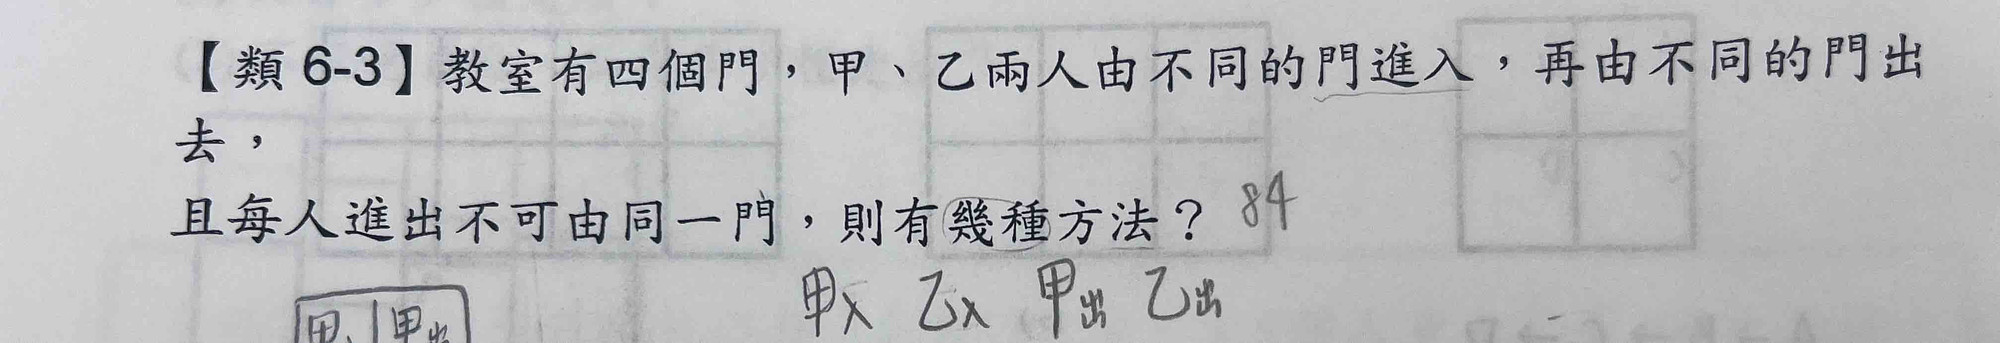 【類 6-3】教室有四個門，甲、乙兩人由不同的門進入，再由不同的門出
去，
且每人進出不可由同一門，則有幾種方法？ 84
甲入 乙入 甲出 乙出
甲入 甲出